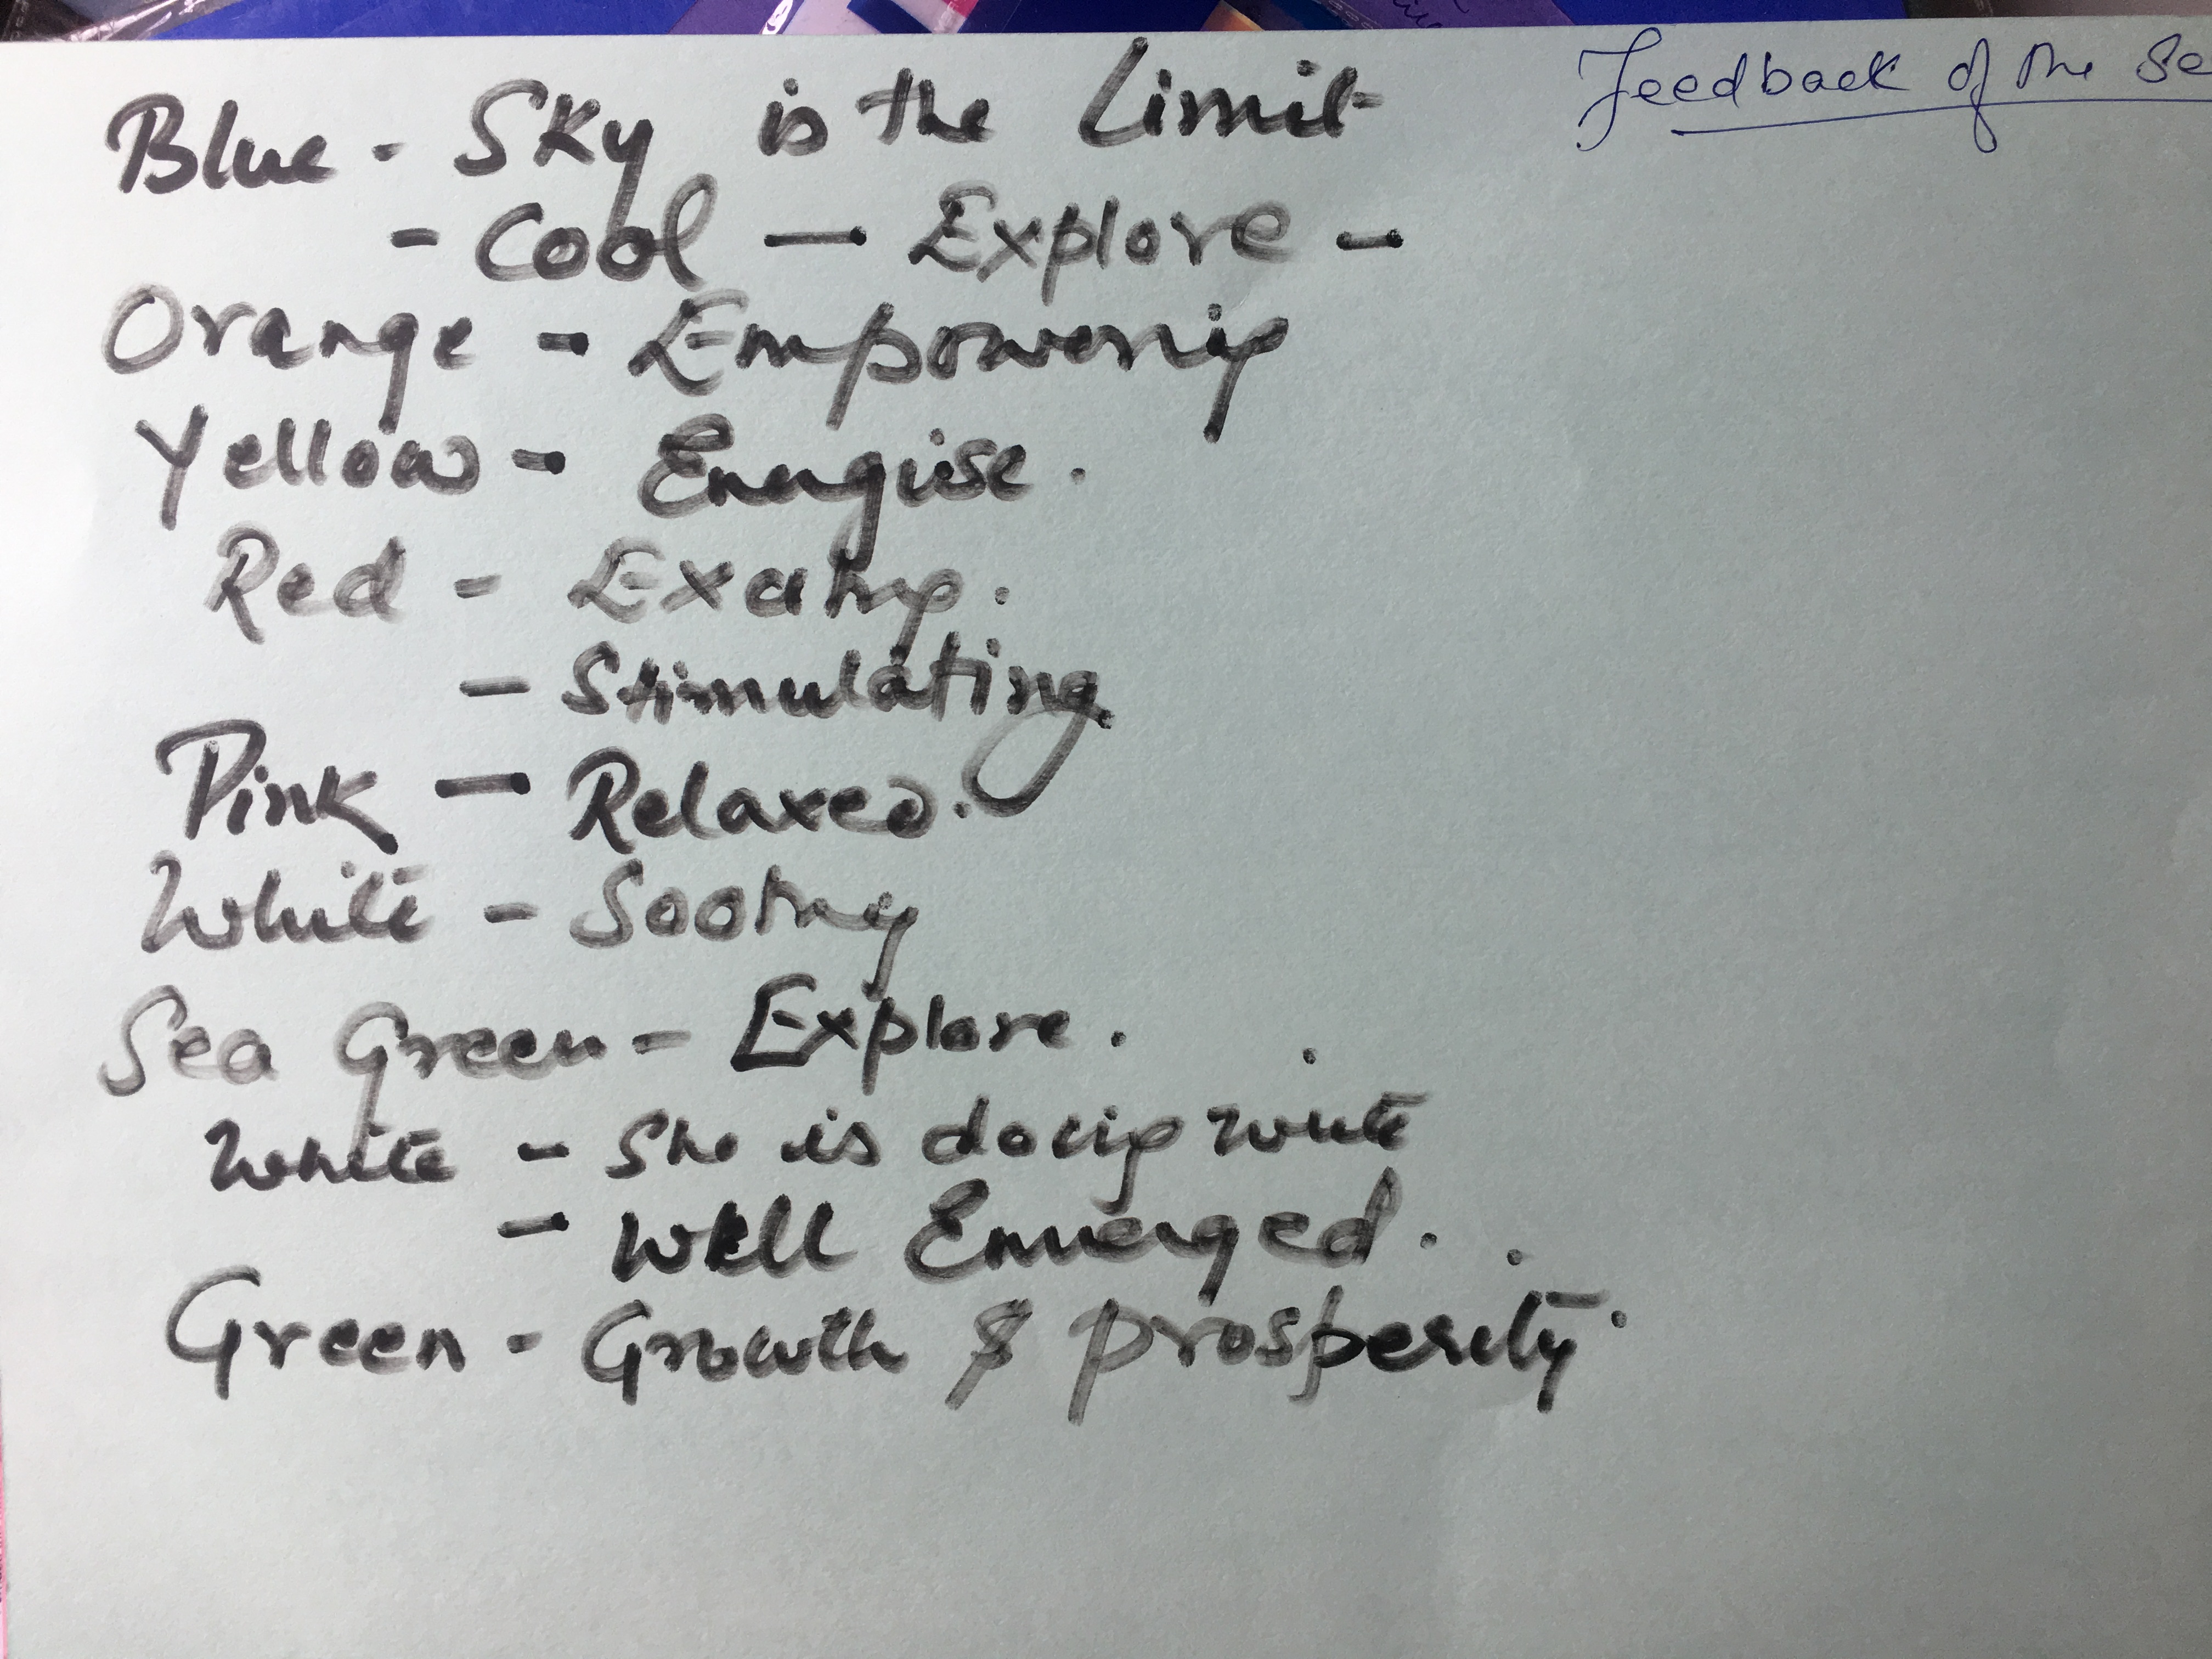 Feedback of the Se
Blue - Sky is the Limit
- Cool — Explore -
Orange - Empowering
Yellow - Energise.
Red - Exciting.
- Stimulating.
Pink — Relaxed.
White - Soothing
Sea Green - Explore.
White - She is doing white
- Well Emerged.
Green - Growth & prosperity.